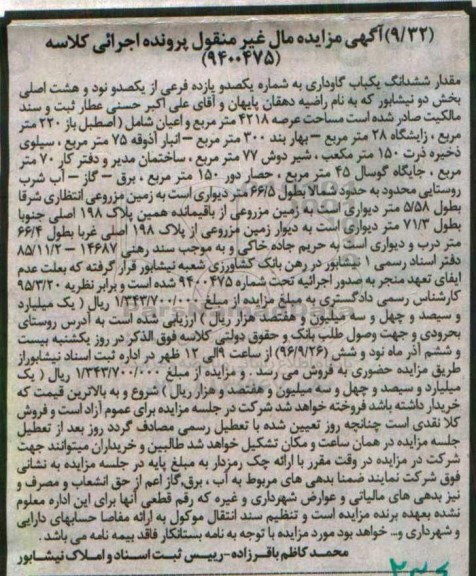 (۹/۳۲) آگهی مزایده مال غیر منقول پرونده اجرائی کلاسه
(۹۴۰۰۴۷۵)
مقدار ششدانگ یکباب گاوداری به شماره یکصدو یازده فرعی از یکصدو نود و هشت اصلی
بخش دو نیشابور که به نام راضیه دهقان پایهان و آقای علی اکبر حسنی عطار ثبت و سند
مالکیت صادر شده است مساحت عرصه ۴۲۱۸ متر مربع و اعیان شامل (اصطبل باز ۲۲۰ متر
مربع ، زایشگاه ۲۸ متر مربع – بهار بند ۳۰۰ متر مربع – انبار آذوقه ۷۵ متر مربع ، سیلوی
ذخیره ذرت ۱۵۰ متر مکعب ، شیر دوش ۷۷ متر مربع ، ساختمان مدیر و دفتر کار ۷۰ متر
مربع ، جایگاه گوسال ۴۵ متر مربع ، حصار دور ۱۵۰ متر مربع ، برق – گاز – آب شرب
روستایی محدود به حدود شمالا بطول ۶۶/۵ متر دیواری است به زمین مزروعی انتظاری شرقا
بطول ۵/۵۸ متر دیواری است به زمین مزروعی از باقیمانده همین پلاک ۱۹۸ اصلی جنوبا
بطول ۷۱/۳ متر دیواری است به دیوار زمین مزروعی از پلاک ۱۹۸ اصلی غربا بطول ۶۶/۴
متر درب و دیواری است به حریم جاده خاکی و به موجب سند رهنی ۱۴۶۸۷ – ۸۵/۱۱/۲
دفتر اسناد رسمی ۱ نیشابور در رهن بانک کشاورزی شعبه نیشابور قرار گرفته که بعلت عدم
ایفای تعهد منجر به صدور اجرائیه تحت شماره ۹۴۰۰۴۷۵ شده است و برابر نظریه ۹۵/۳/۲۰
کارشناس رسمی دادگستری به مبلغ مزایده از مبلغ ۱/۳۴۳/۷۰۰/۰۰۰ ریال ( یک میلیارد
و سیصد و چهل و سه میلیون و هفتصد هزار ریال ) ارزیابی شده است به آدرس روستای
بحرودی و جهت وصول طلب بانک و حقوق دولتی کلاسه فوق الذکر در روز یکشنبه بیست
و ششم آذر ماه نود و شش (۹۶/۹/۲۶) از ساعت ۹ الی ۱۲ ظهر در اداره ثبت اسناد نیشابور از
طریق مزایده حضوری به فروش می رسد . و مزایده از مبلغ ۱/۳۴۳/۷۰۰/۰۰۰ ریال ( یک
میلیارد و سیصد و چهل و سه میلیون و هفتصد و هزار ریال ) شروع و به بالاترین قیمت که
خریدار داشته باشد فروخته خواهد شد شرکت در جلسه مزایده برای عموم آزاد است و فروش
کلا نقدی است چنانچه روز تعیین شده با تعطیل رسمی مصادف گردد روز بعد از تعطیل
جلسه مزایده در همان ساعت و مکان تشکیل خواهد شد طالبین و خریداران میتوانند جهت
شرکت در مزایده در وقت مقرر با ارائه چک رمزدار به مبلغ پایه در جلسه مزایده به نشانی
فوق شرکت نمایند ضمنا بدهی های مربوط به آب ، برق،گاز اعم از حق انشعاب و مصرف و
نیز بدهی های مالیاتی و عوارض شهرداری و غیره که رقم قطعی آنها برای این اداره معلوم
نشده بعهده برنده مزایده است و تنظیم سند انتقال موکول به ارائه مفاصا حسابهای دارایی
و شهرداری و... خواهد بود مورد مزایده با توجه به نامه بستانکار فاقد بیمه نامه می باشد .
محمد کاظم باقرزاده-رییس ثبت اسناد و املاک نیشابور